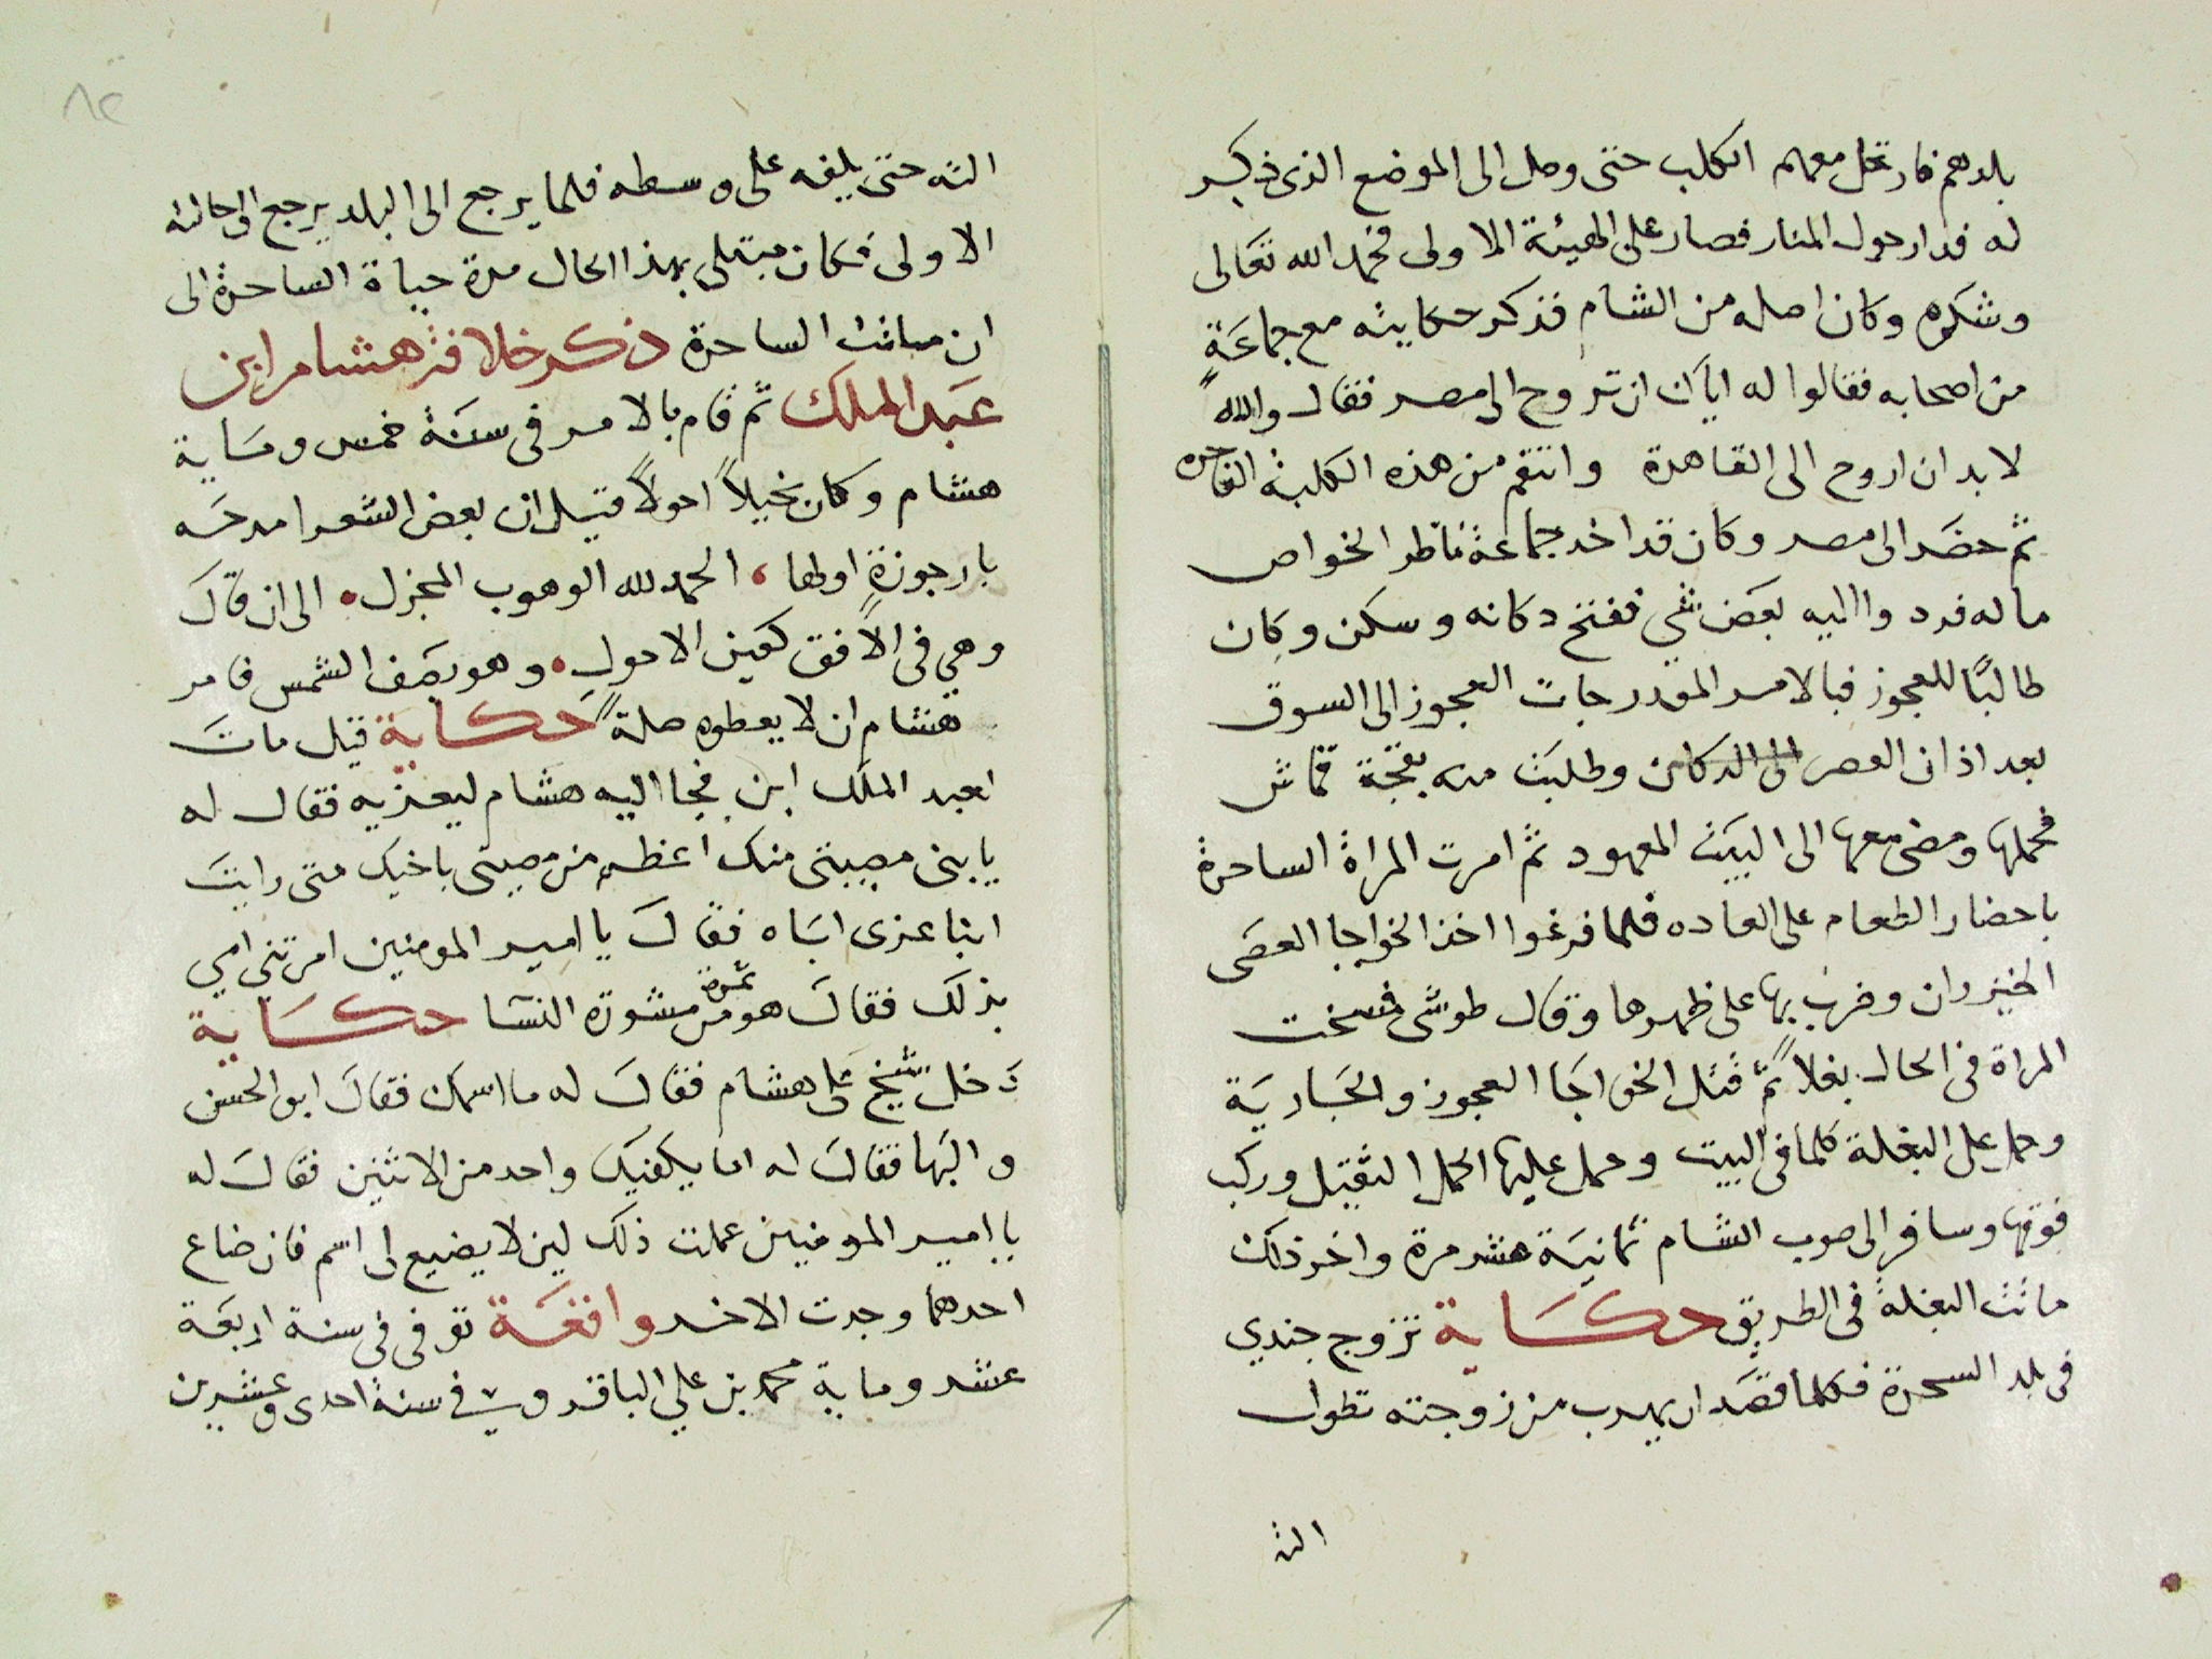 بلدهم فارتحل معهم الكلب حتى وصل الى الموضع الذى ذكر
له فدار حول المنار فصار على الهيئة الاولى فحمد الله تعالى
وشكره وكان اصله من الشام فذكر حكايته مع جماعة
من اصحابه فقالوا له اياك ان تروح الى مصر فقال والله
لابد ان اروح الى القاهرة وانتقم من هذه الكلبة الفاجره
ثم حضر الى مصر وكان قد اخد جماعة ناظر الخواص
ماله فردوا اليه بعض شي ففتح دكانه وسكن وكان
طالبًا للعجوز فبالامر المقدر جات العجوز الى السوق
بعد اذان العصر الى الدكان وطلبت منه بقجة قماش
فحملها ومضى معها الى البيت المعهود ثم امرت المراة الساحرة
باحضار الطعام على العاده فلما فرغوا اخذ الخواجا العصى
الخيزران وضرب بها على ظهرها وقال طوشى فمسخت
المراة فى الحال بغلا ثم قتل الخواجا العجوز والجارية
وحمل على البغلة كلما فى البيت وحمل عليها الحمل الثقيل وركب
فوقها وسافر الى صوب الشام ثمانية عشر مرة واخر ذلك
ماتت البغلة فى الطريق حكاية تزوج جندي
فى بلد السحرة فكلما قصد ان يهرب من زوجته تطول
الته
٨٢
الته حتى يلفه على وسطه فلما يرجع الى البلد يرجع الى حالته
الاولى فكان مبتلى بهذا الحال مدة حياة الساحرة الى
ان ماتت الساحرة ذكر خلافة هشام ابن
عبد الملك ثم قام بالامر فى سنة خمس وماية
هشام وكان بخيلاً احولاً قيل ان بعض الشعرا مدحه
بارجوزة اولها ، الحمد لله الوهوب المجزل • الى ان قال
وهي فى الافق كعين الاحول • وهو يصف الشمس فامر
هشام ان لا يعطوه صلة حكاية قيل مات
لعبد الملك ابن فجا اليه هشام ليعزيه فقال له
يا بنى مصيبتى منك اعظم من مصيبتى باخيك متى رايت
ابنا عزى اباه فقال يا امير المومنين امرتنى امي
بذلك فقال هو من ثمرة مشورة النسا حكاية
دخل شيخ على هشام فقال له ما اسمك فقال ابو الحسن
والبها فقال له اما يكفيك واحد من الاثنين فقال له
يا امير المومنين عملت ذلك لين لا يضيع لى اسم فان ضاع
احدهما وجدت الاخر واقعة توفى فى سنة اربعة
عشر وماية محمد بن علي الباقر وفى سنة احدى وعشرين